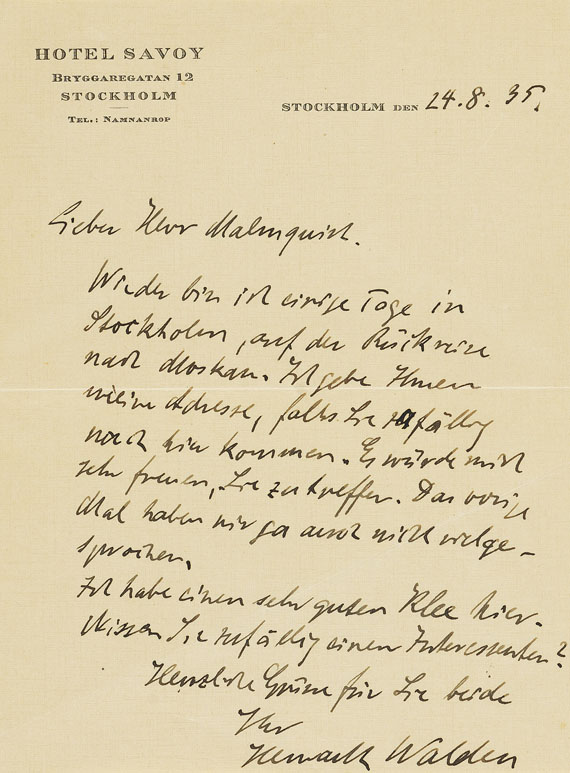 HOTEL SAVOY
BRYGGAREGATAN 12
STOCKHOLM
TEL.: NAMNANROP
STOCKHOLM DEN 24.8.35.
Lieber Herr Malmquist.
Wieder bin ich einige Tage in
Stockholm, auf der Rückreise
nach Moskau. Ich gebe Ihnen
meine Adresse, falls Sie zufällig
nach hier kommen. Es würde mich
sehr freuen, Sie zu treffen. Das vorige
Mal haben wir ja auch nicht vielge-
sprochen.
Ich habe einen sehr guten Klee hier.
Wissen Sie zufällig einen Interessenten?
Herzliche Grüsse für Sie beide
Ihr
Herwarth Walden